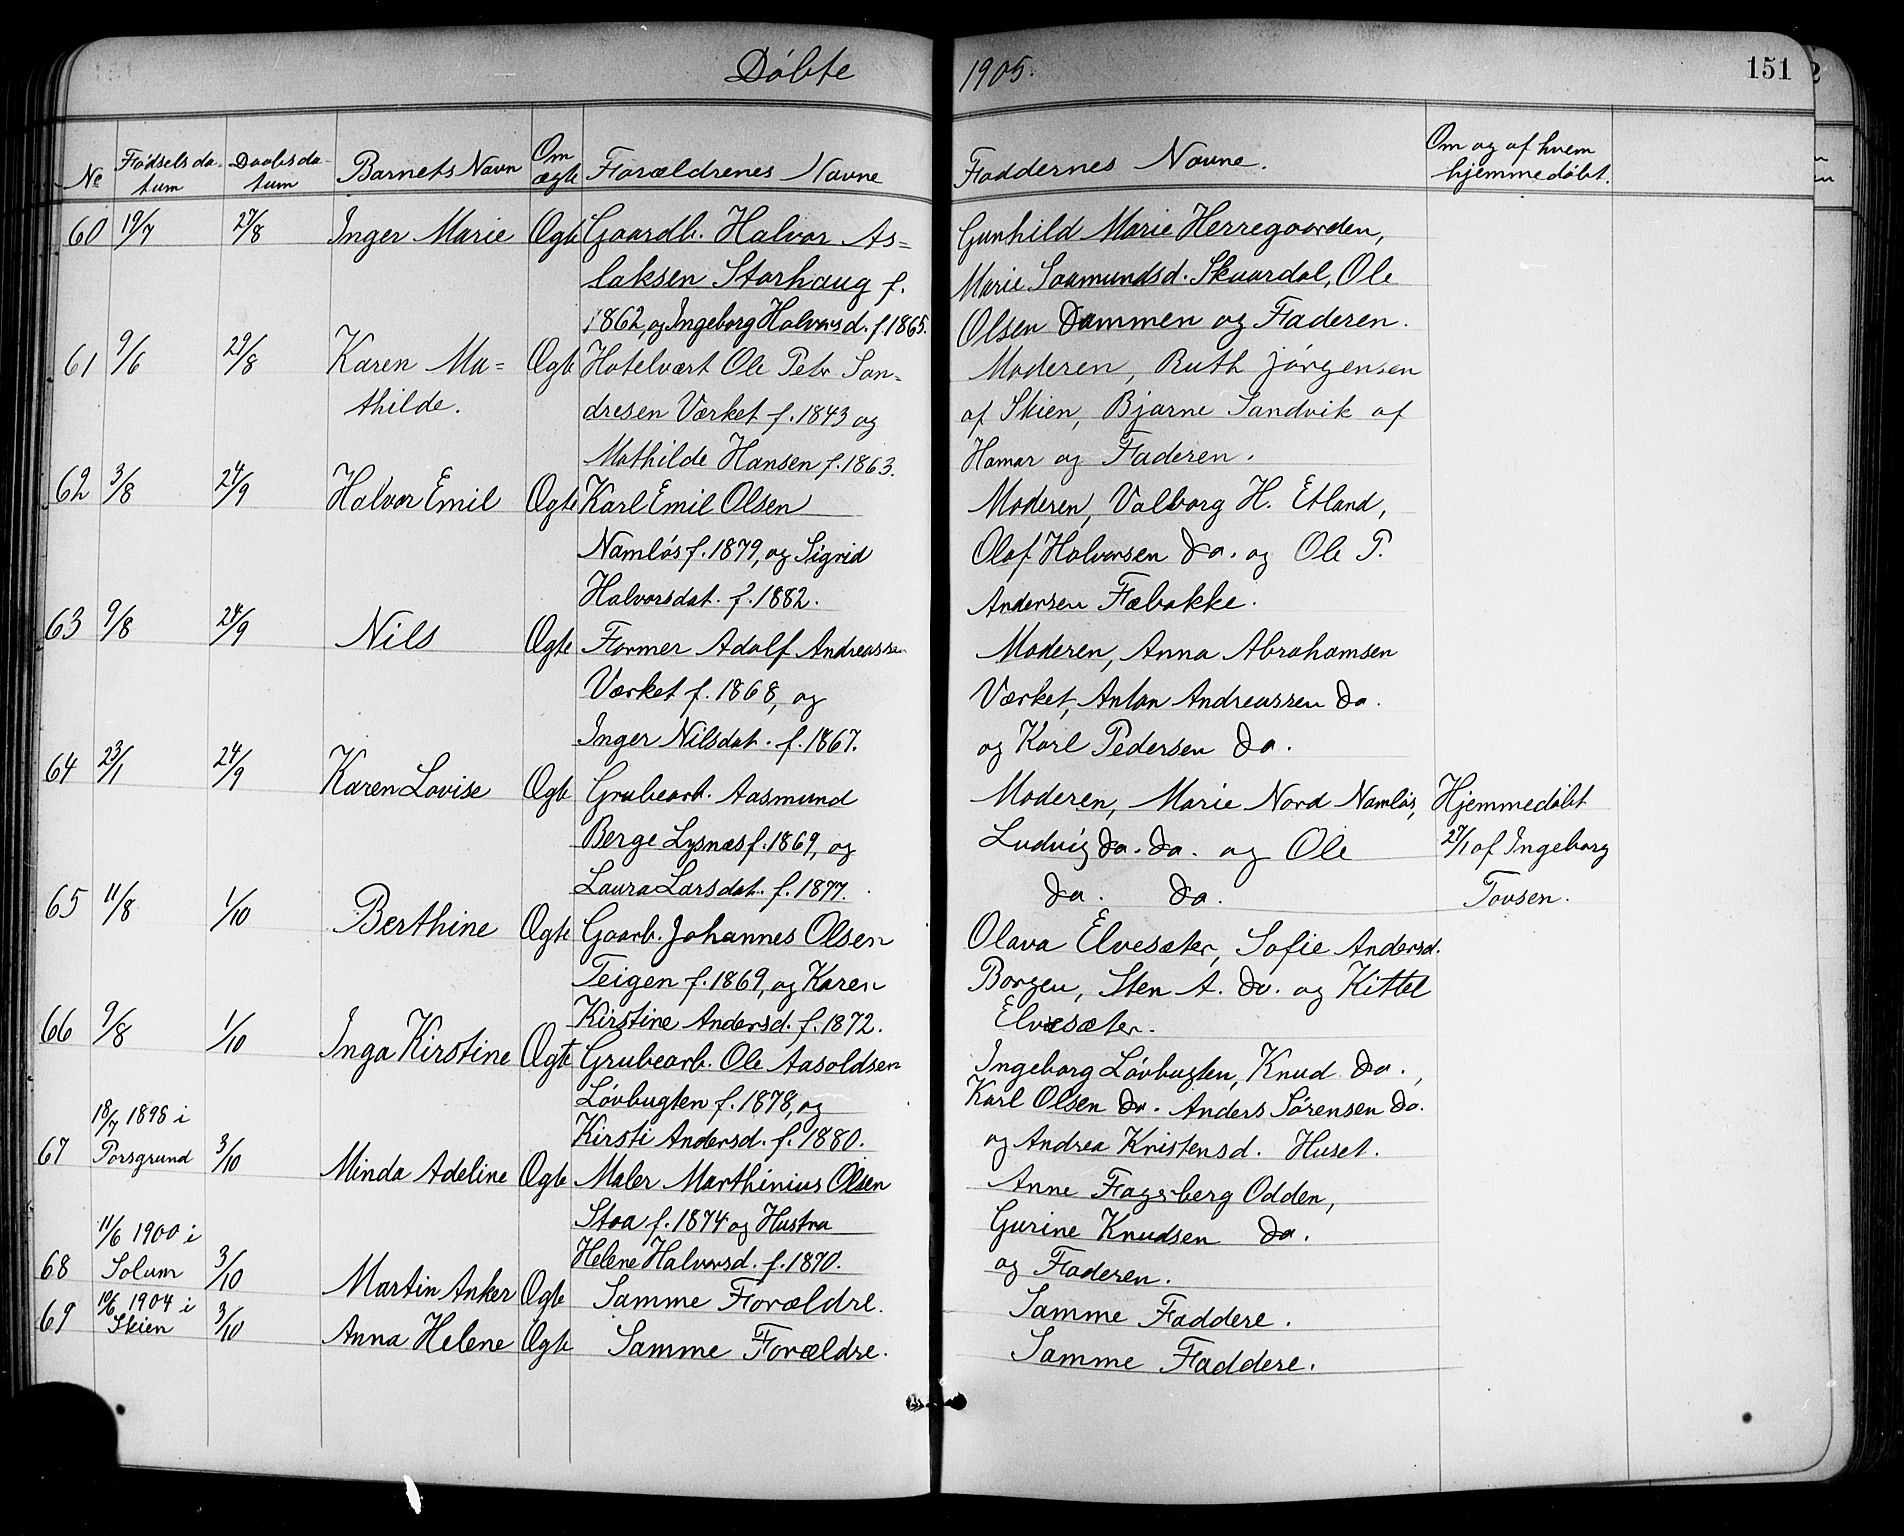 Døbte 1905.
151
No Fødselsda- tum Daabsda- tum Barnets Navn Om ægte Forældrenes Navne Faddernes Navne. Om og af hvem hjemmedøbt.
60 19/7 27/8 Inger Marie Ægte Gaardb. Halvor As= Gunhild Marie Herregaarden,
laksen Storhaug f. Marie Saamundsd. Skaardal, Ole
1862, og Ingeborg Halvorsd. f. 1865. Olsen Dammen og Faderen.
61 9/6 29/8 Karen Ma= Ægte Hotelvært Ole Peter San- Moderen, Ruth Jørgensen
thilde. dresen Værket f. 1843 og af Skien, Bjarne Sandvik af
Mathilde Hansen f. 1863. Hamar og Faderen.
62 3/8 24/9 Halvor Emil Ægte Karl Emil Olsen Moderen, Valborg H. Etland,
Namløs f. 1879, og Sigrid Olaf Halvorsen Do. og Ole P.
Halvorsdat. f. 1882. Andersen Fæbakke.
63 9/8 24/9 Nils Ægte Former Adolf Andreassen Moderen, Anna Abrahamsen
Værket f. 1868, og Værket, Anton Andreassen Do.
Inger Nilsdat. f. 1867. og Karl Pedersen Do.
64 23/1 24/9 Karen Lovise Ægte Grubearb. Aasmund Moderen, Marie Nord Namløs, Hjemmedøbt
Berge Lysnæs f. 1869, og Ludvig Do. Do. og Ole 27/1 af Ingeborg
Laura Larsdat. f. 1877. Do. Do. Tovsen.
65 11/8 1/10 Berthine Ægte Gaarb. Johannes Olsen Olava Elvesæter, Sofie Andersd.
Teigen f. 1869, og Karen Borgen, Sten A. Do. og Kittel
Kirstine Andersd. f. 1872. Elvesæter.
66 9/8 1/10 Inga Kirstine Ægte Grubearb. Ole Aasoldsen Ingeborg Løvbugten, Knud Do.,
Løvbugten f. 1878, og Karl Olsen Do. Anders Sørensen Do.
Kirsti Andersd. f. 1880. og Andrea Kristensd. Huset.
67 18/7 1898 i Porsgrund 3/10 Minda Adeline Ægte Maler Marthinius Olsen Anne Fagerberg Odden,
Stoa f. 1874 og Hustru Gurine Knudsen Do.
Helene Halvorsd. f. 1870. og Faderen.
68 11/6 1900 i Solum 3/10 Martin Anker Ægte Samme Forældre. Samme Faddere.
69 10/6 1904 i Skien 3/10 Anna Helene Ægte Samme Forældre. Samme Faddere.